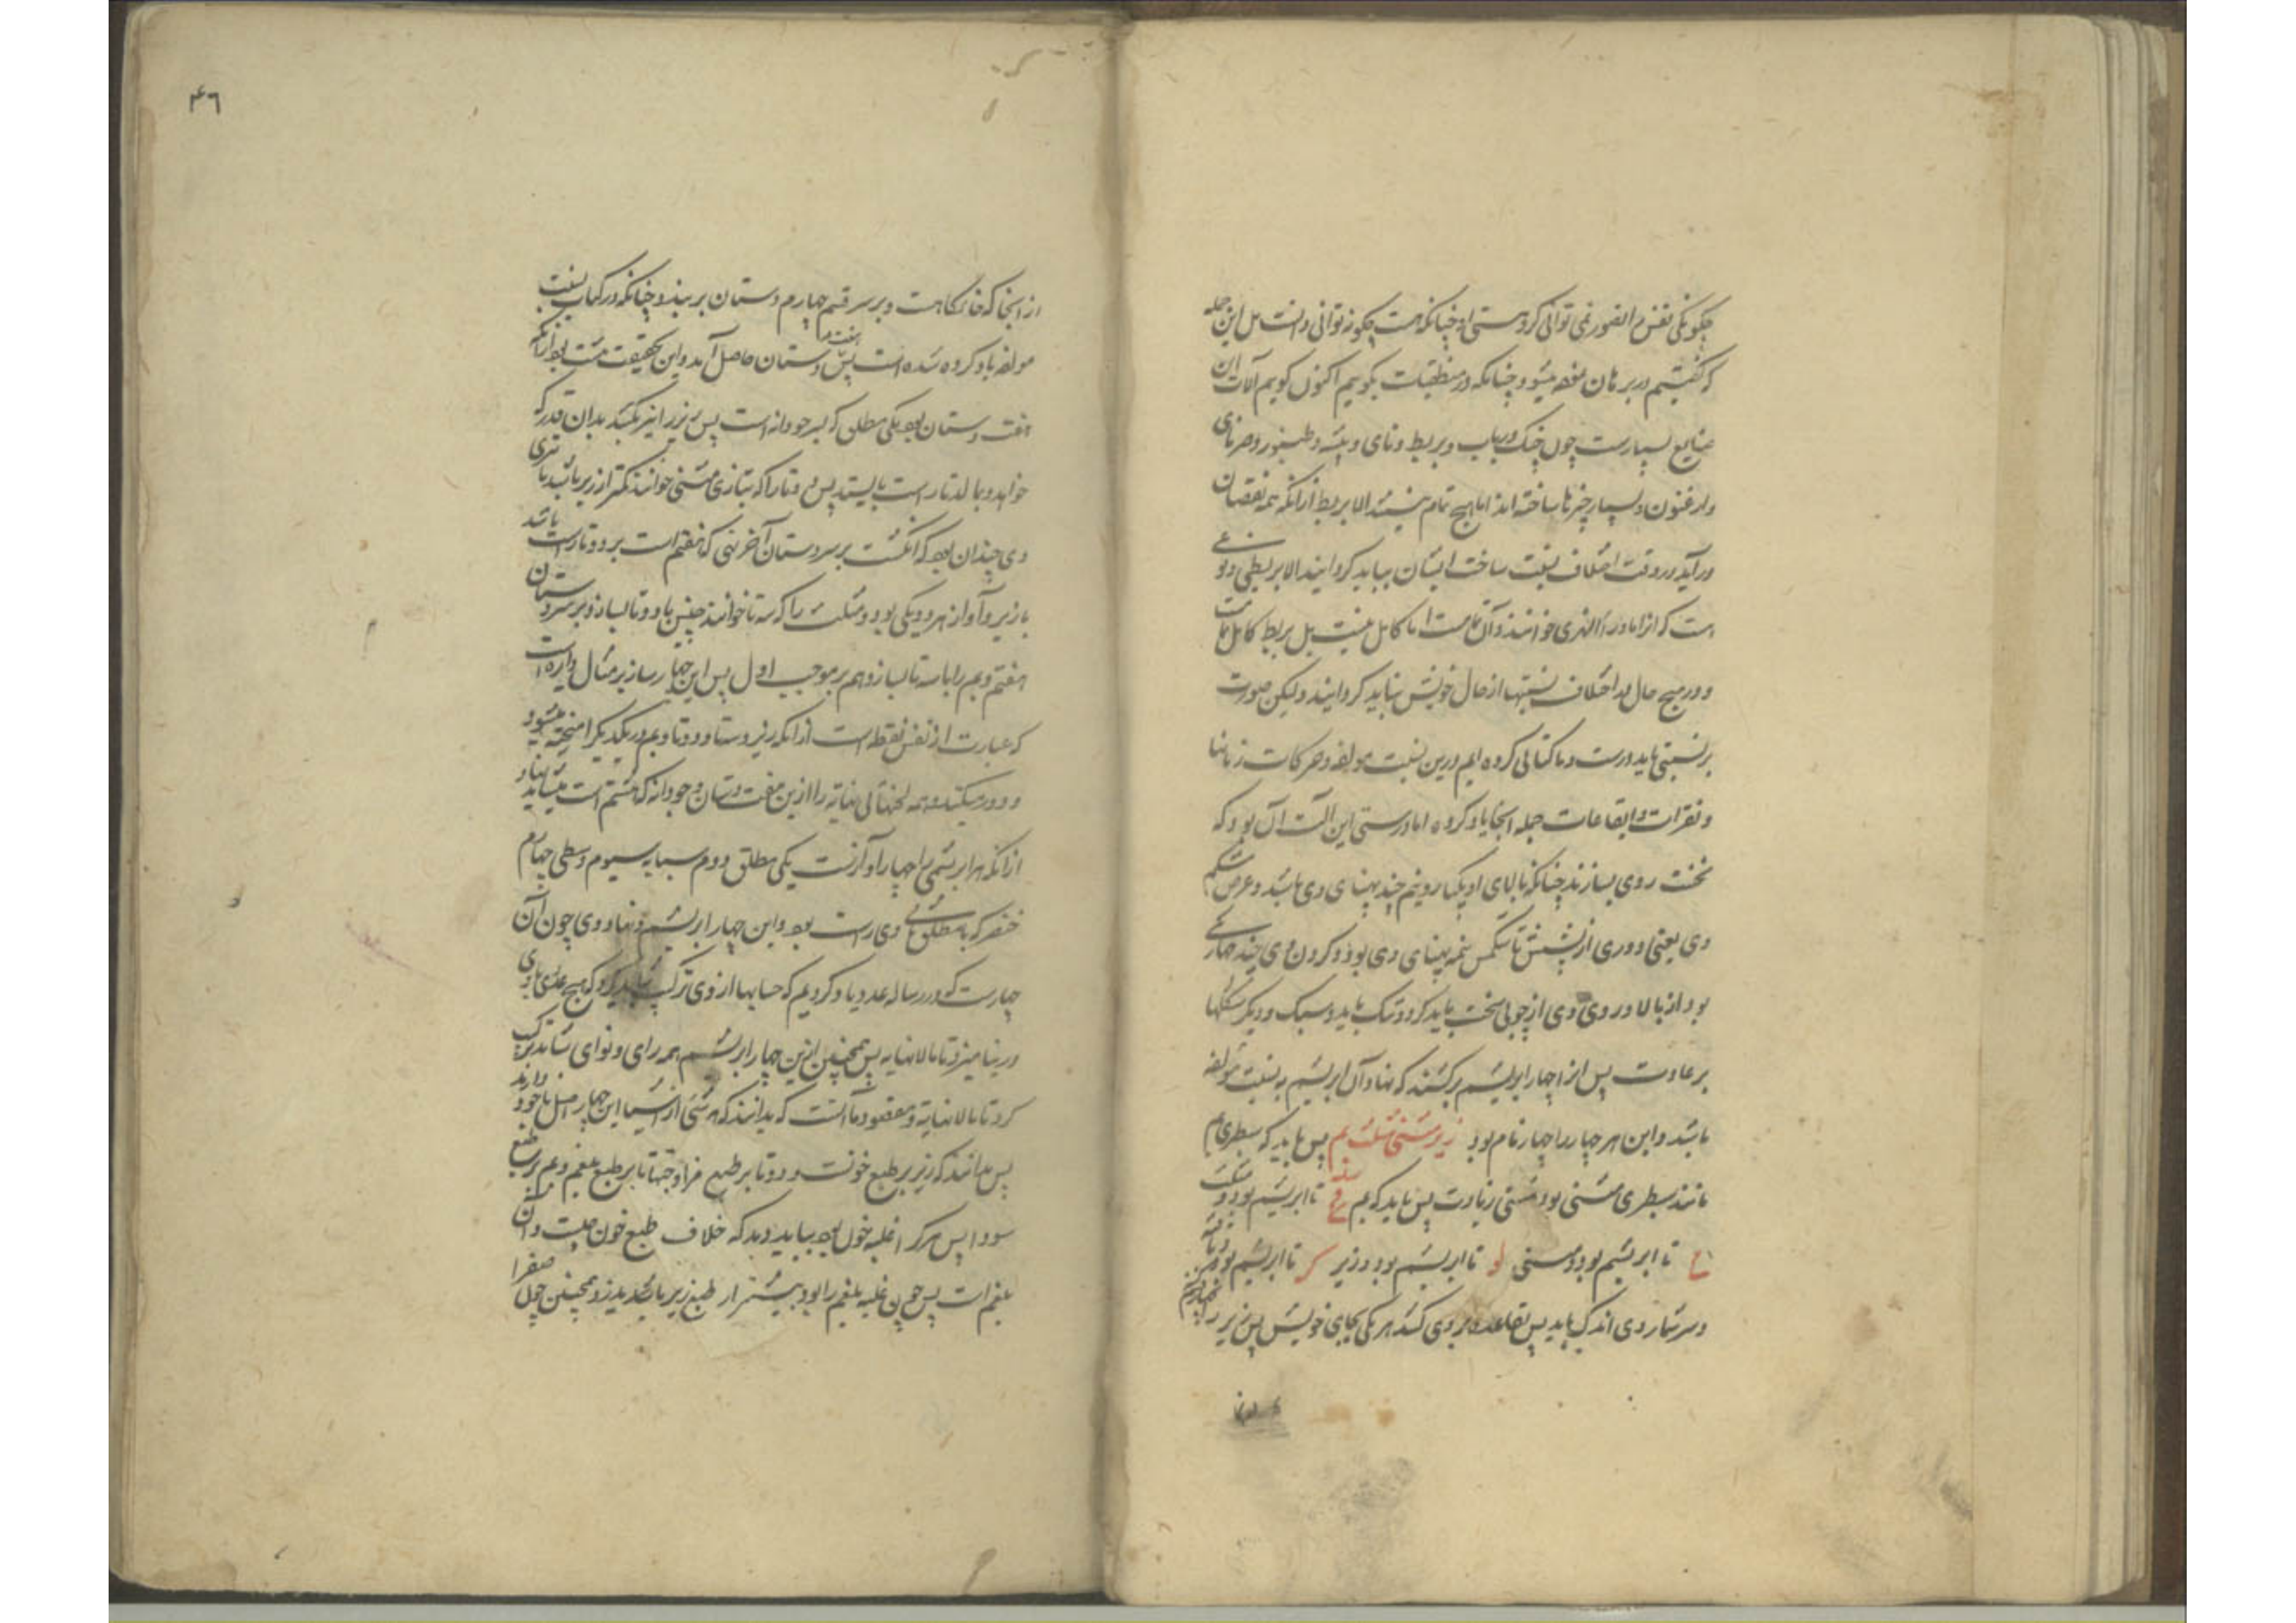 چگونگی نفس را تصور نمی توانی کرد و هستی او چنانکه هست چگونه توانی دانست بل این جمله
که گفتیم در برهان میشود چنانکه در منطقیات بگوییم اکنون گوییم آلات این
صنایع بسیارست چون چنگ و رباب و بربط و نای و بیشه و طنبور و
و ارغنون و بسیار چیزها ساخته اند اما هیچ تمام نیستند الا بربط ازانکه همه نقصان
در آید در وقت اختلاف نسبت ساخت ایشان بباید گردانید الا بربطی و نوعی
است که انرا ماوراء النهری خوانند و آن تمامست اما کامل نیست بل بربط کامل
و در هیچ حال اختلاف نسبتها از حال خویش نباید گردانید ولیکن صورت
بر نسبتی باید درست و ما کتابی کرده ایم درین نسبت مولفه و حرکات زمانها
و نقرات و ایقاعات جمله انجا یاد کرده اما درستی این الت آن بود که
نخست روی بسازند چنانکه بالای او یکبار و نیم چند پهنای وی باشد و عرض شکم
وی یعنی دوری از پشتش تا شکمش نیمه پهنای وی بود و گردن وی چند چهار یکی
بود از بالا و روی وی از چوبی سخت باید کرد و تنک باید و سبک و دیگر شکلها
بر عادت پس انرا چهار ابریشم برکشند که نهاد آن ابریشم به نسبت مولفه
باشد و این هر چهار را چهار نام بود زیر و مثنی مثلث بم پس باید که سطبری بم
مانند سطبری مثنی بود و مثنی زیادت پس باید که بم تا ابریشم بود و مثلث
تا ابریشم بود و مثنی لو تا ابریشم بود و زیر کر تا ابریشم بود
و سر شمار وی اندک باید پس بقاعده بر وی کشد هر یکی بجای خویش پس زیر را
از انجا که خانگاهست و بر سر قسم چهارم دستان بر بندد چنانکه در کتاب نسبت
مولفه یاد کرده شده است پس هفت دستان حاصل آمد و این بحقیقت هشت بود ازانکه
هفت دستان بود یکی مطلق که است پس زیر را نیز بکشد بدان قدر که
خواهد و مالد تا راست بایستد پس دو تا را که بتازی مثنی خوانند کمتر از زیر باشد تا تری
وی چندان بود که انگشت بر سر دستان آخر نهی که هفتم است بر دو تا راست باشد
با زیر و آواز هر دو یکی بود و مثلث را که سه تا خوانند چنین با دو تا بسازد بر سر دستان
هفتم و بم را با سه تا بسازد هم بر موجب اول پس این چهار ساز بر مثال دایره است
که عبارت از نفس نقطه است ازانکه زیر و ستا و دو تا و بم در یکدیگر امیخته میشود
و دور میکند و همه لحنهای بی نهایة را ازین هفت دستان که هشتم است
ازانکه هر ابریشمی را چهار آوازست یکی مطلق دوم سبابه سیوم وسطی چهارم
خنصر که با مطلق وی راست بود و این چهار ابریشم و نهاد وی چون آن
چهارست که در رساله عدد یاد کردیم که حسابها از وی ترکیب شاید کرد که هیچ عددی با وی
در نیامیزد تا مالا نهایه پس همچنین ازین چهار ابریشم همه رای و نوای شاید ترکیب
کرد تا مالا نهایة و مقصود ما آنست که بدانند که هر شئ از اشیا این چهار اصل با خود دارند
پس بدانند که زیر بر طبع خونست و دو تا بر طبع صفرا و سه تا بر طبع بلغم و بم بر طبع
سودا پس هر که را غلبه خون بود بباید دید که خلاف طبع خون چیست و آن
بلغم است پس چون غلبه بلغم را بود بیشتر از طبع زیر باید زد و همچنین چون صفرا